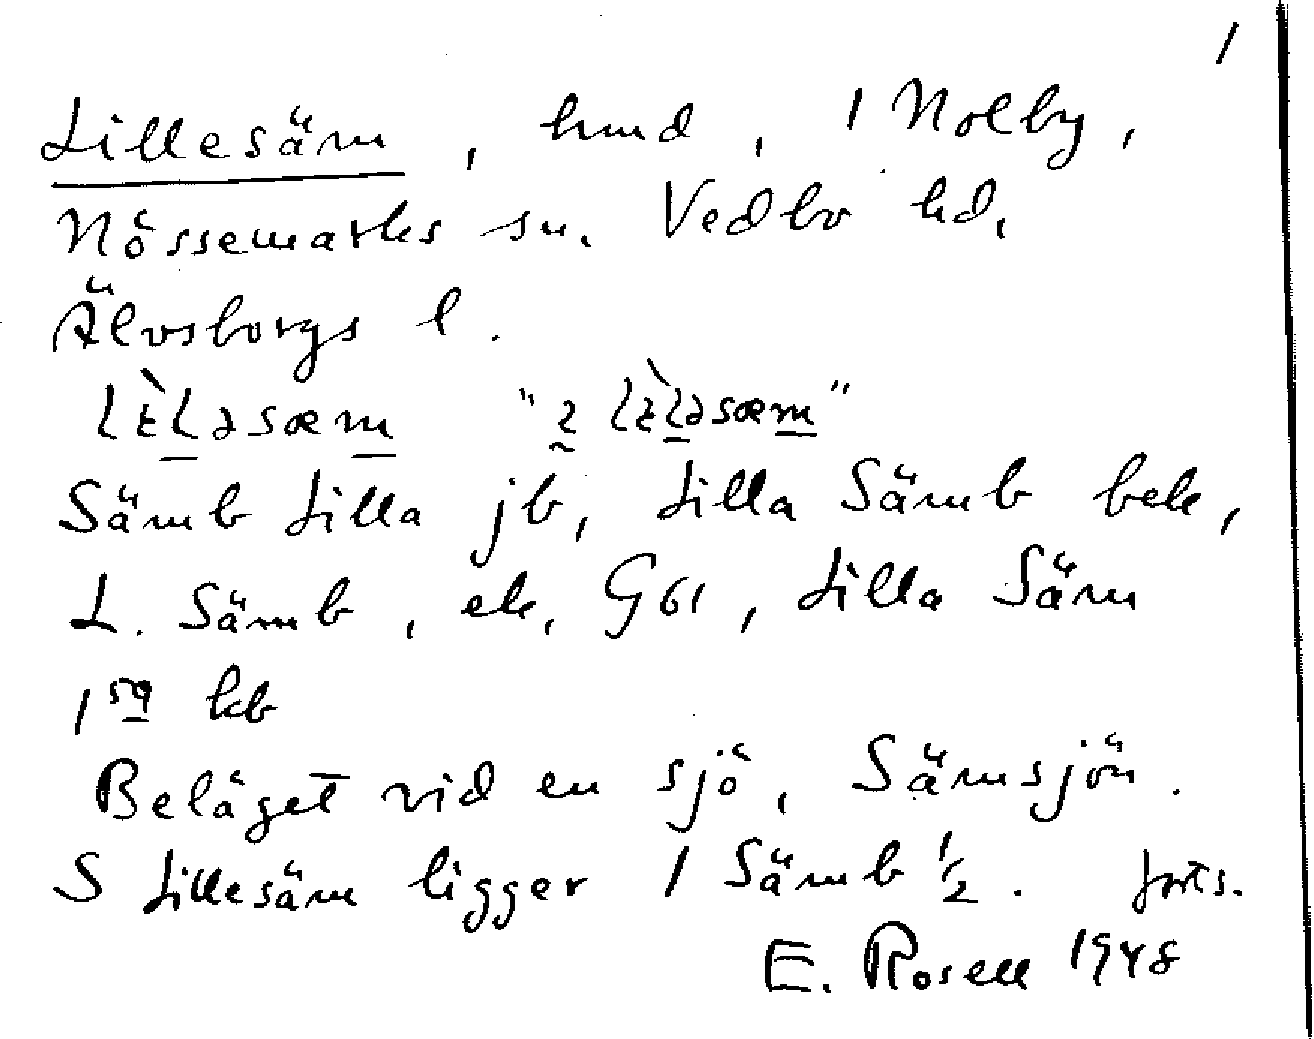 1
Lillesäm, hmd, 1 Nolby,
Nössemarks sn. Vedbo hd,
Älvsborgs l.
Sämb Lilla jb, Lilla Sämb bek,
L. Sämb, ek, G61, Lilla Säm
1 59 kb
Beläget vid en sjö, Sämsjön.
S Lillesäm ligger 1 Sämb 1/2. forts.
E. Rosell 1948